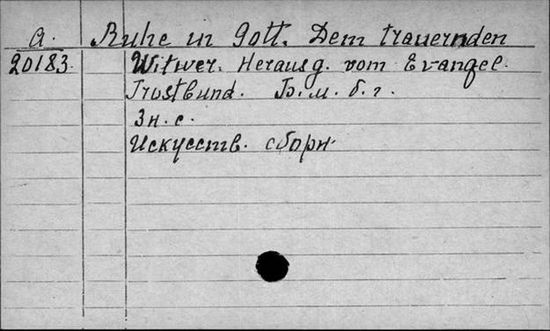 A. Ruhe in Gott. Dem trauernden
20183. Witwer. Herausg. vom Evangel.
Trostbund. Б.м.б.г.
3н.с.
Искусств. сборн.